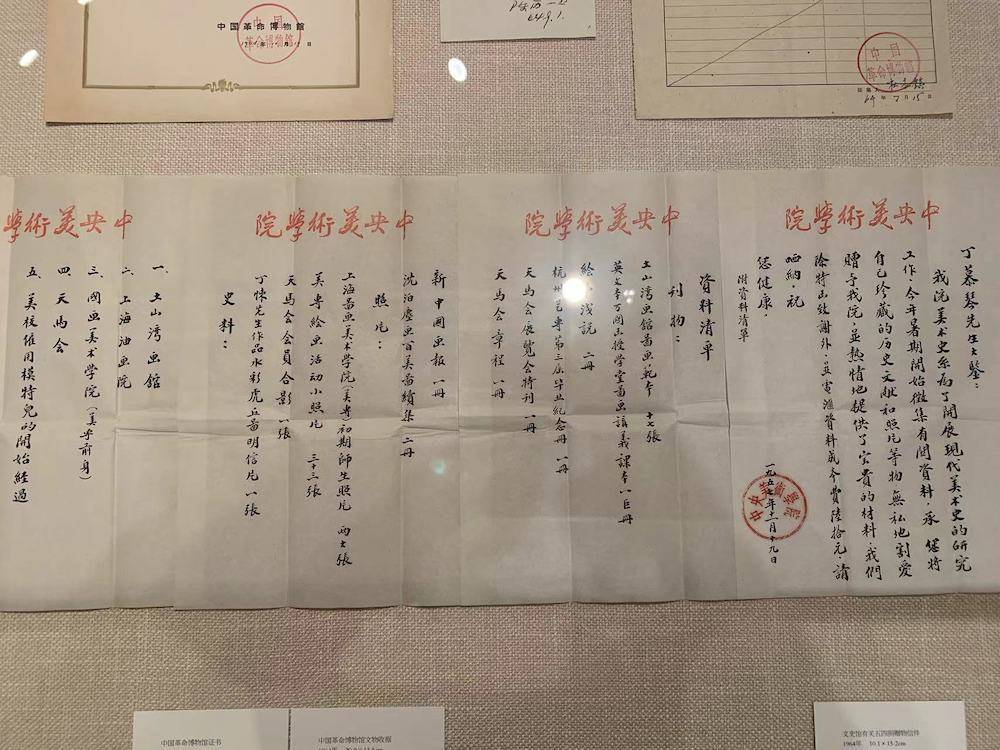 中国革命博物館
中国
革命博物館
64.9.1.
中国
革命博物館
64年7月15日
中央美術學院
丁慕琴先生大鑒：
我院美术史系為了開展現代美术史的研究
工作，今年暑期開始徵集有関資料，承您將
自己珍藏的历史文献和照片等物無私地割愛
贈予我院，並熱情地提供了宝貴的材料，我們
除特函致謝外，並電滙資料成本費陸拾元，請
哂納，祝
您健康，
附資料清單
一九五七年十一月十九日
中央美術學院
中央美術學院
資料清單
刊物：
土山湾画館畵画範本 十七張
英文本丁國函授学堂畵画講義課本一巨冊
絵画浅説 二冊
杭州艺专第三屆毕业紀念冊 一冊
天馬会展覧会特刊 一冊
天馬会章程 一冊
中央美術學院
新中國画报 一冊
沈泊塵画百美畵續集 二冊
照片：
上海畵画美术学院（美專）初期師生照片 兩大張
美專絵画活动小照片 三十三張
天馬会会員合影 一張
丁悚先生作品水彩虎丘畵明信片一張
史料：
中央美術學院
一、土山湾画館
二、上海油画院
三、國画美术学院（美专前身）
四、天馬会
五、美校雇用模特兒的開始経過
中国革命博物馆证书
中国革命博物馆文物收据
文史馆有关五四捐赠物信件
1964年 10.1×15.2cm